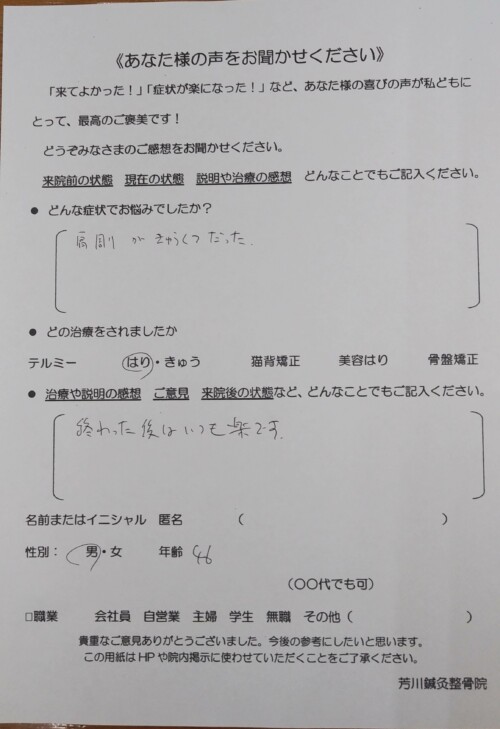 《あなた様の声をお聞かせください》
「来てよかった！」「症状が楽になった！」など、あなた様の喜びの声が私どもに
とって、最高のご褒美です！
どうぞみなさまのご感想をお聞かせください。
来院前の状態　現在の状態　説明や治療の感想　どんなことでもご記入ください。
● どんな症状でお悩みでしたか？
肩周りがきゅうくつだった.
● どの治療をされましたか
テルミー　はり・きゅう　猫背矯正　美容はり　骨盤矯正
● 治療や説明の感想　ご意見　来院後の状態など、どんなことでもご記入ください。
終わった後はいつも楽です.
名前またはイニシャル　匿名　（　）
性別：　男・女　年齢 46
（〇〇代でも可）
□職業　会社員　自営業　主婦　学生　無職　その他（　）
貴重なご意見ありがとうございました。今後の参考にしたいと思います。
この用紙はHPや院内掲示に使わせていただくことをご了承ください。
芳川鍼灸整骨院